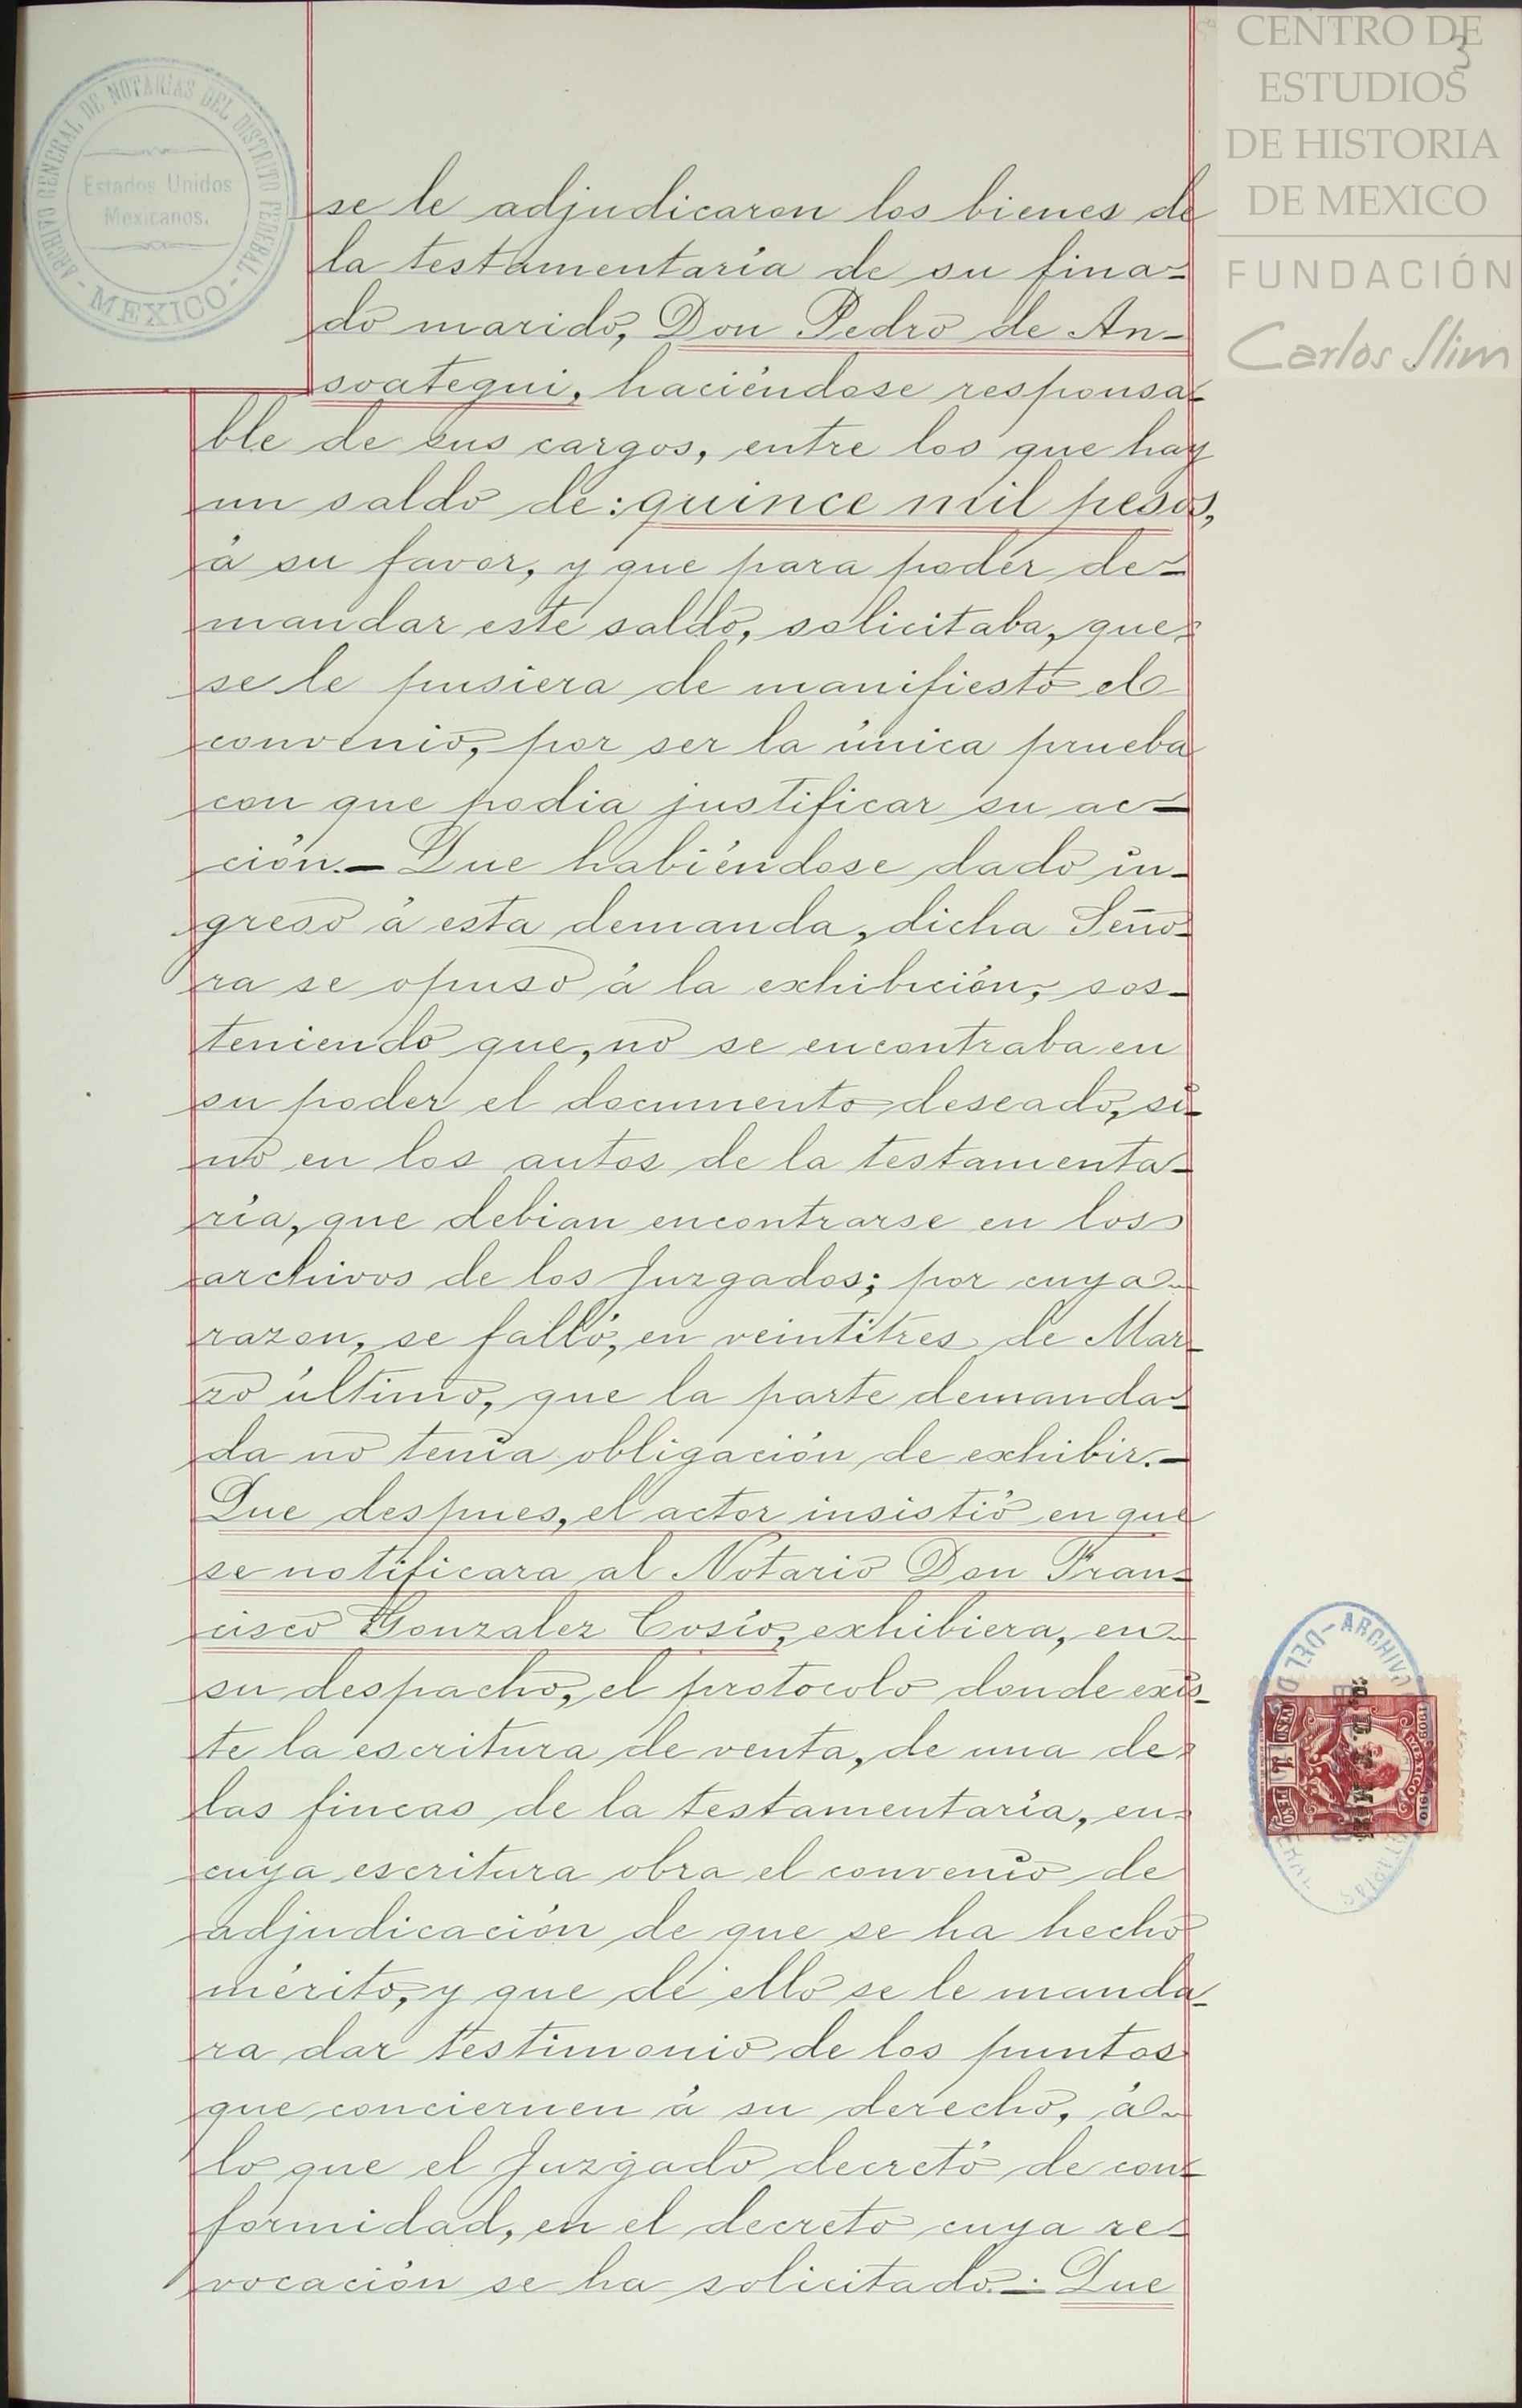 CENTRO DE
ESTUDIOS
DE HISTORIA
DE MEXICO
FUNDACIÓN
Carlos Slim
3
ARCHIVO GENERAL DE NOTARIAS DEL DISTRITO FEDERAL
- MEXICO -
Estados Unidos
Mexicanos.
se le adjudicaron los bienes de
la testamentaria de su fina-
do marido, Don Pedro de An-
soategui, haciéndose responsa-
ble de sus cargos, entre los que hay
un saldo de: quince mil pesos,
á su favor, y que para poder de-
mandar este saldo, solicitaba, que
se le pusiera de manifiesto el
convenio, por ser la única prueba
con que podia justificar su ac-
ción.- Que habiéndose dado in-
greso á esta demanda, dicha Seño-
ra se opuso á la exhibición, sos-
teniendo que, no se encontraba en
su poder el documento deseado, si-
no en los autos de la testamenta-
ría, que debian encontrarse en los
archivos de los Juzgados; por cuya
razon, se falló, en veintitres de Mar-
zo último, que la parte demanda-
da no tenía obligación de exhibir.-
Que despues, el actor insistió en que
se notificara al Notario Don Fran-
cisco Gonzalez Cosío, exhibiera, en
su despacho, el protocolo donde exis-
te la escritura de venta, de una de
las fincas de la testamentaría, en
cuya escritura obra el convenio de
adjudicación de que se ha hecho
mérito, y que de ello se le manda-
ra dar testimonio de los puntos
que conciernen á su derecho, á
lo que el Juzgado decretó de con-
formidad, en el decreto cuya re-
vocación se ha solicitado.- Que
- ARCHIVO
MEXICO
1909
1910
PESO 1 PESO